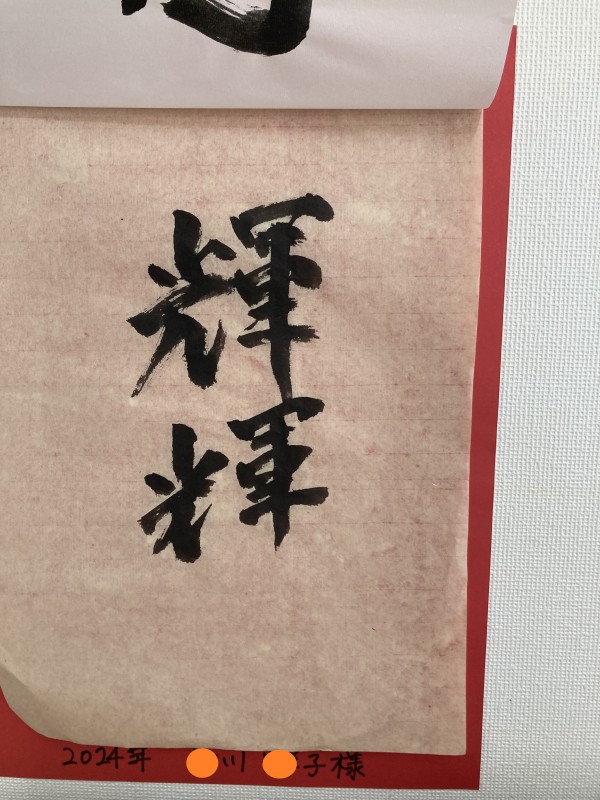 輝
輝
2024年 川 子様